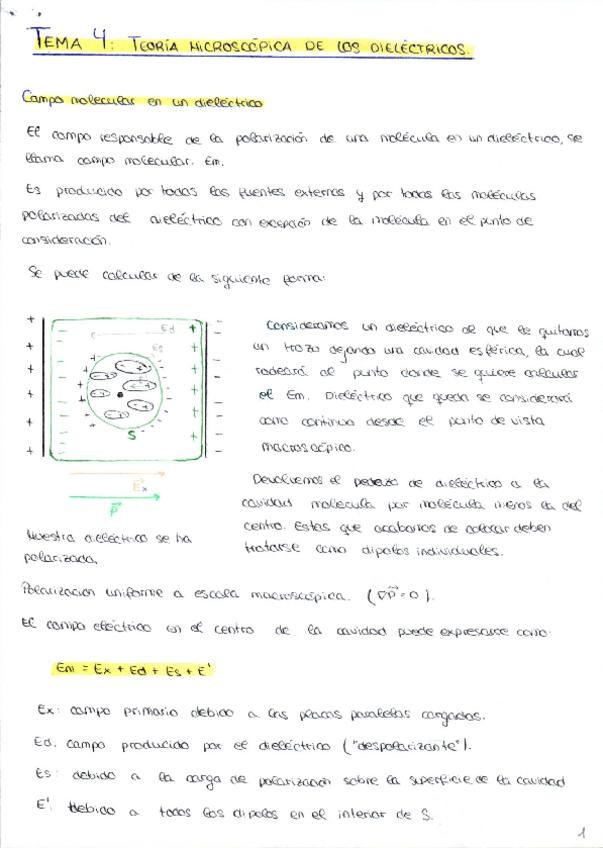 TEMA 4: TEORÍA MICROSCÓPICA DE LOS DIELÉCTRICOS.
Campo molecular en un dieléctrico
El campo responsable de la polarización de una molécula en un dieléctrico, se
llama campo molecular. Em.
Es producido por todas las fuentes externas y por todas las moléculas
polarizadas del dieléctrico con excepción de la molécula en el punto de
consideración.
Se puede calcular de la siguiente forma:
Ed
Es
S
Ex
P
Consideramos un dieléctrico al que le quitamos
un trozo dejando una cavidad esférica, la cual
rodeará al punto donde se quiere calcular
el Em. Dieléctrico que queda se considerará
como continuo desde el punto de vista
macroscópico.
Devolvemos el pedazo de dieléctrico a la
cavidad molécula por molécula menos la del
centro. Estas que acabamos de colocar deben
tratarse como dipolos individuales.
Nuestro dieléctrico se ha
polarizado.
Polarización uniforme a escala macroscópica. (∇P=0).
El campo eléctrico en el centro de la cavidad puede expresarse como:
Em = Ex + Ed + Es + E'
Ex: campo primario debido a las placas paralelas cargadas.
Ed. campo producido por el dieléctrico ("despolarizante").
Es: debido a la carga de polarización sobre la superficie de la cavidad
E'. debido a todos los dipolos en el interior de S.
1